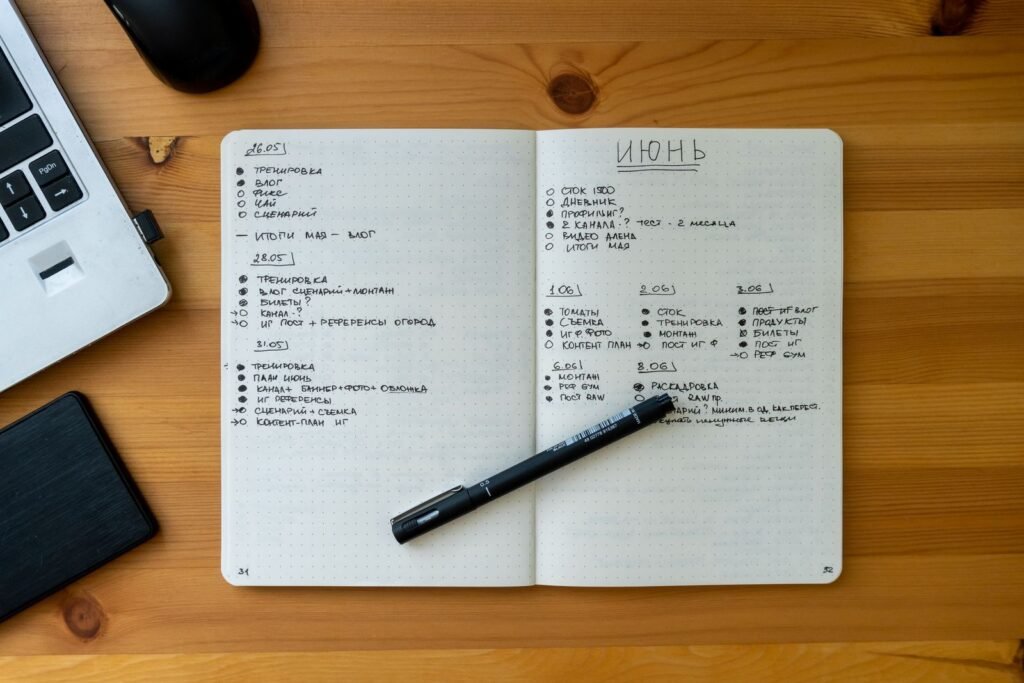 PgDn
26.05
ТРЕНИРОВКА
ВЛОГ
ФИКС
ЧАЙ
СЦЕНАРИЙ
— ИТОГИ МАЯ – ВЛОГ
28.05
ТРЕНИРОВКА
ВЛОГ СЦЕНАРИЙ + МОНТАЖ
БИЛЕТЫ?
КАНАЛ - ?
ИГ ПОСТ + РЕФЕРЕНСЫ ОГОРОД
31.05
ТРЕНИРОВКА
ПЛАН ИЮНЬ
КАНАЛ + БАННЕР + ФОТО + ОБЛОЖКА
ИГ РЕФЕРЕНСЫ
СЦЕНАРИЙ + СЪЕМКА
КОНТЕНТ-ПЛАН ИГ
31
ИЮНЬ
СТОК 1500
ДНЕВНИК
ПРОФИЛЬ ИГ?
2 КАНАЛА - ? ТЕСТ - 2 МЕСЯЦА
ВИДЕО АЛЕНА
ИТОГИ МАЯ
1.06
ТОМАТЫ
СЪЕМКА
ИГ Ф. ФОТО
КОНТЕНТ ПЛАН
2.06
СТОК
ТРЕНИРОВКА
МОНТАЖ
ПОСТ ИГ Ф
3.06
ПОСТ ИГ ВЛОГ
ПРОДУКТЫ
БИЛЕТЫ
ПОСТ ИГ
РЕФ БУМ
6.06
МОНТАЖ
РЕФ БУМ
ПОСТ RAW
8.06
РАСКАДРОВКА
RAW ПР.
? МИНИМ. В ОД. КАК ПЕРЕСТ.
ненужные вещи
0.5
32